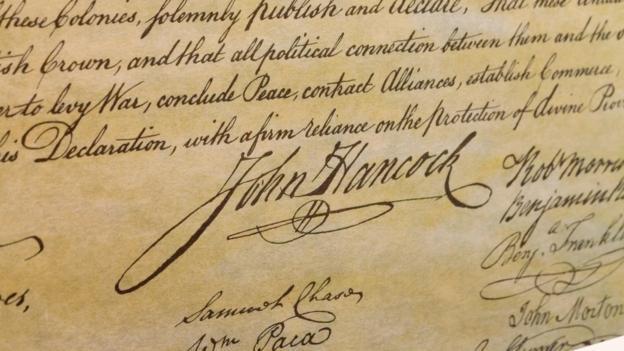 these Colonies, solemnly publish and declare, That these
ish Crown, and that all political connection between them and the
er to levy War, conclude Peace, contract Alliances, establish Commerce,
his Declaration, with a firm reliance on the protection of divine Prov
John Hancock
Robt Morris
Benjamin R
Benj. Franklin
Samuel Chase
Wm Paca
John Morton